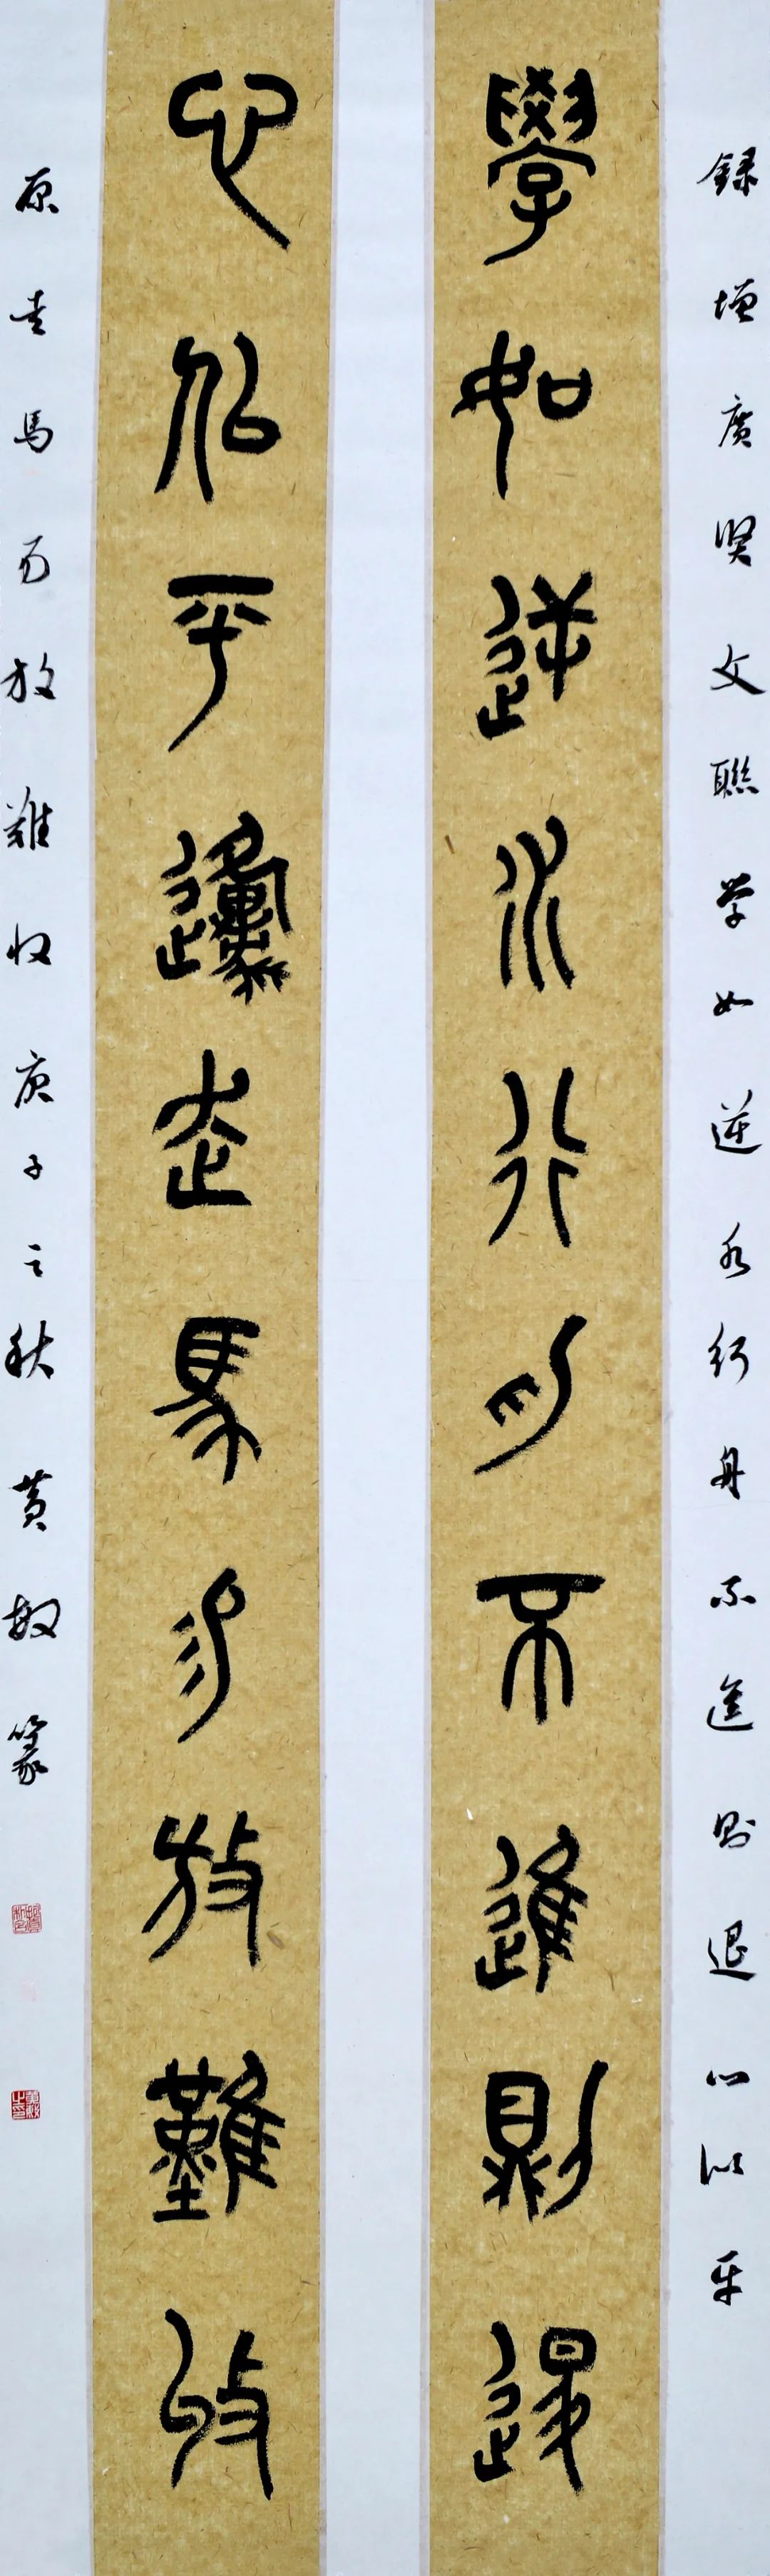 録增廣賢文聯学如逆水行舟不進則退心似平
學如逆水行舟不進則退
心似平邍走馬易放難收
原走馬易放難收庚子之秋黄敏篆